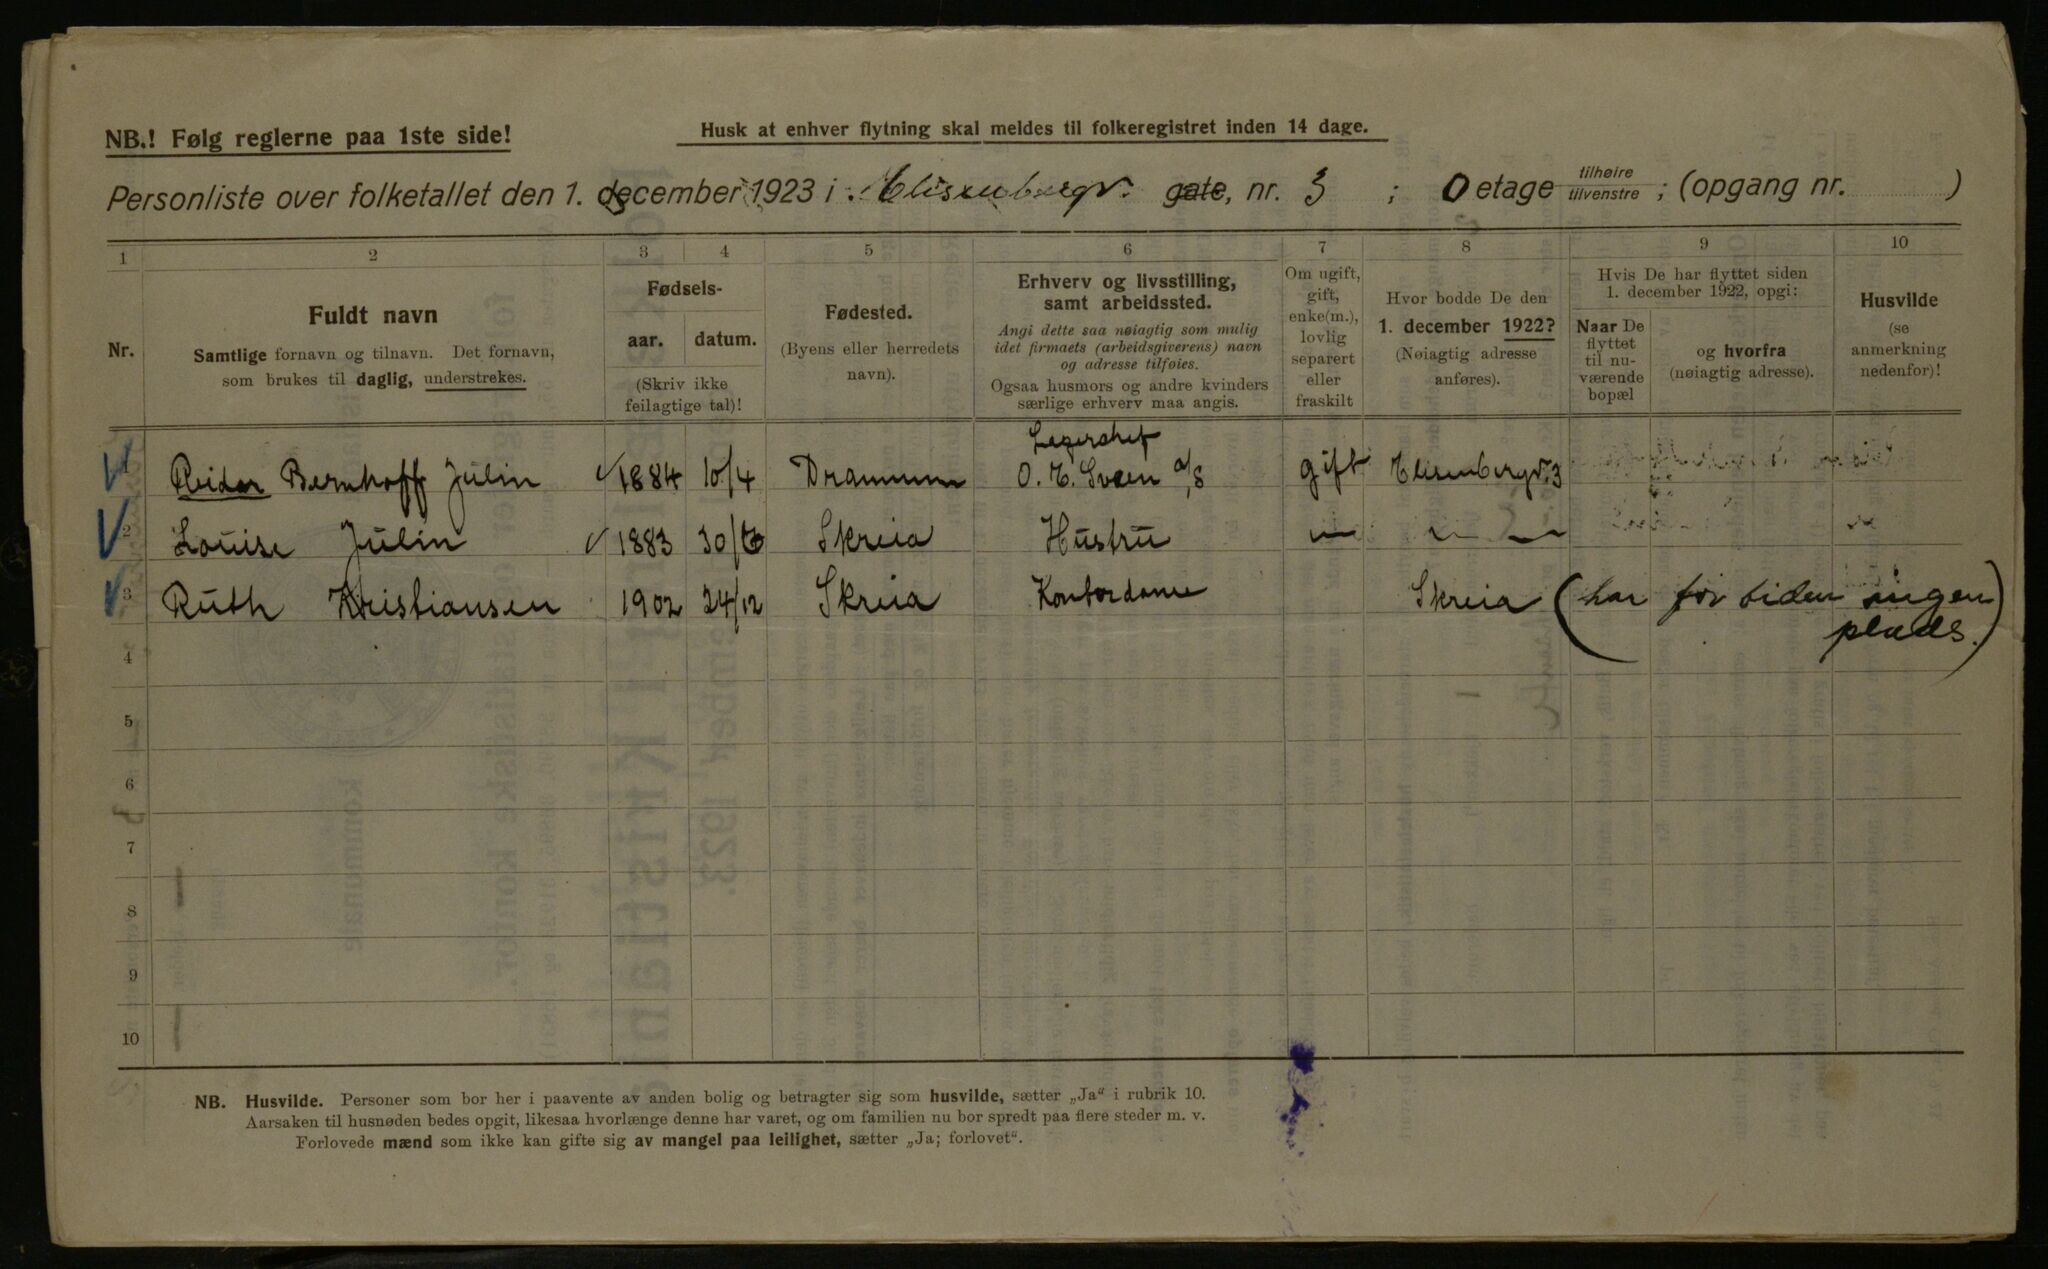 NB.! Følg reglerne paa 1ste side!
Husk at enhver flytning skal meldes til folkeregistret inden 14 dage.
Personliste over folketallet den 1. december 1923 i Elisenbergv. gate, nr. 3 ; 0 etage tilhøire tilvenstre ; (opgang nr. )
1 2 3 4 5 6 7 8 9 10
Nr.
Fuldt navn
Samtlige fornavn og tilnavn. Det fornavn,
som brukes til daglig, understrekes.
Fødsels-
aar. datum.
(Skriv ikke
feilagtige tal)!
Fødested.
(Byens eller herredets
navn).
Erhverv og livsstilling,
samt arbeidssted.
Angi dette saa nøiagtig som mulig
idet firmaets (arbeidsgiverens) navn
og adresse tilføies.
Ogsaa husmors og andre kvinders
særlige erhverv maa angis.
Om ugift,
gift,
enke(m.),
lovlig
separert
eller
fraskilt
Hvor bodde De den
1. december 1922?
(Nøiagtig adresse
anføres).
Hvis De har flyttet siden
1. december 1922, opgi:
Naar De
flyttet
til nu-
værende
bopæl
og hvorfra
(nøiagtig adresse).
Husvilde
(se
anmerkning
nedenfor)!
Lagerchef
1 Reidar Bernhoff Julin 1884 10/4 Drammen O. E. Sveen a/s gift Elisenbergv. 3
2 Louise Julin 1883 30/ Skreia Hustru — — —
3 Ruth Kristiansen 1902 24/12 Skreia Kontordame Skreia (har for tiden ingen
plads.)
4
5
6
7
8
9
10
NB. Husvilde. Personer som bor her i paavente av anden bolig og betragter sig som husvilde, sætter „Ja“ i rubrik 10.
Aarsaken til husnøden bedes opgit, likesaa hvorlænge denne har varet, og om familien nu bor spredt paa flere steder m. v.
Forlovede mænd som ikke kan gifte sig av mangel paa leilighet, sætter „Ja; forlovet“.